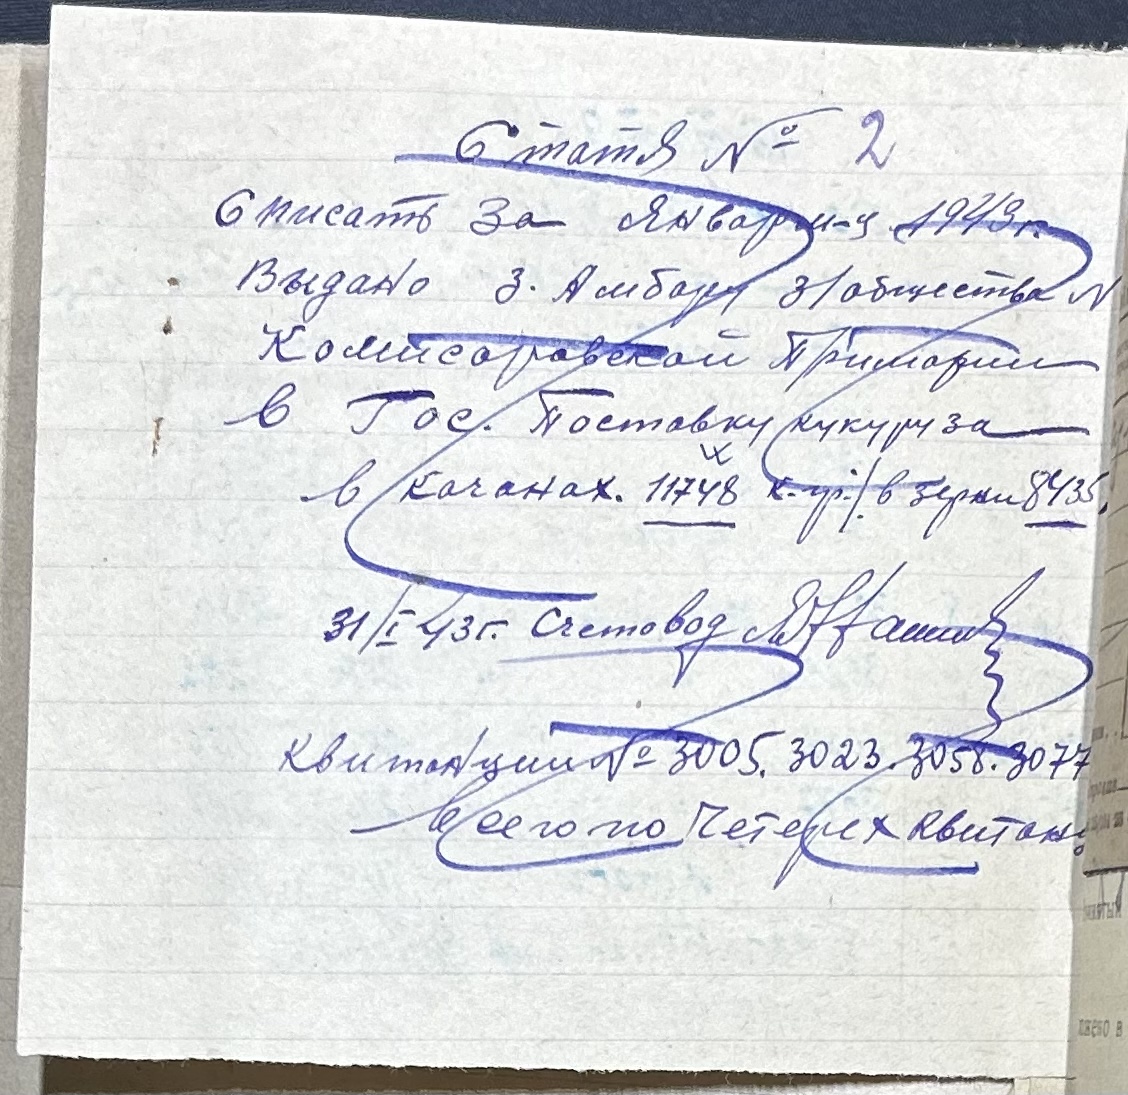 Статя № 2
Списать За Январ м-ц 1943 г.
Выдано З. Амбару З/общества №
Комисаровской Примарии
в Гос. Поставку кукуруза
в Качанах. 11748 к-гр./ в зерни 8435,
31/I-43 г. Счетовод
Квитанции № 3005. 3023. 3058. 3077
Всего по Четерех квитанц